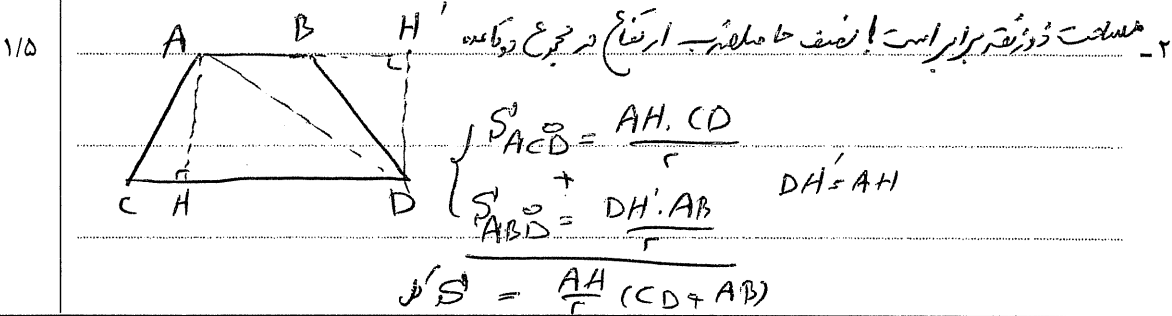 ۱/۵
۲- مساحت ذوزنقه برابر است با نصف حاصلضرب ارتفاع در مجموع دو قاعده
A B H'
C H D
S ACD = AH . CD / ۲
+
S ABD = DH' . AB / ۲
DH' = AH
S کل = AH / ۲ (CD + AB)